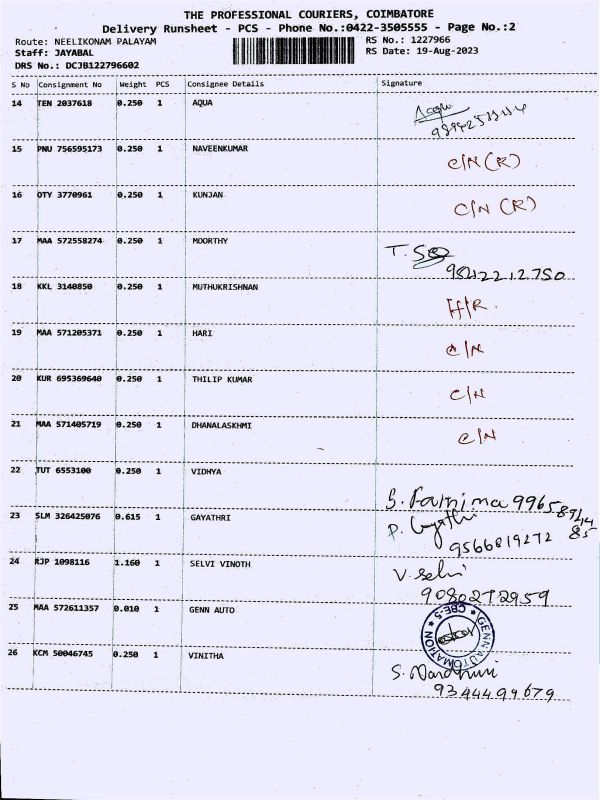 THE PROFESSIONAL COURIERS, COIMBATORE
Delivery Runsheet - PCS - Phone No.:0422-3505555 - Page No.:2
Route: NEELIKONAM PALAYAM
RS No.: 1227966
Staff: JAYABAL
RS Date: 19-Aug-2023
DRS No.: DCJB122796602
S No Consignment No Weight PCS Consignee Details Signature
14 TEN 2037618 0.250 1 AQUA
15 PNU 756595173 0.250 1 NAVEENKUMAR C/N (R)
16 OTY 3770961 0.250 1 KUNJAN C/N (R)
17 MAA 572558274 0.250 1 MOORTHY T.
9842212750
18 KKL 3140850 0.250 1 MUTHUKRISHNAN H/R
19 MAA 571205371 0.250 1 HARI C/N
20 KUR 695369640 0.250 1 THILIP KUMAR C/N
21 MAA 571405719 0.250 1 DHANALASKHMI C/N
22 TUT 6553100 0.250 1 VIDHYA
23 SLM 326425076 0.615 1 GAYATHRI P. Gayathri
9566819272
24 RJP 1098116 1.160 1 SELVI VINOTH V. Selvi
9080272959
25 MAA 572611357 0.010 1 GENN AUTO GENN AUTOMATION CBE-5
26 KCM 50046745 0.250 1 VINITHA
9344499679